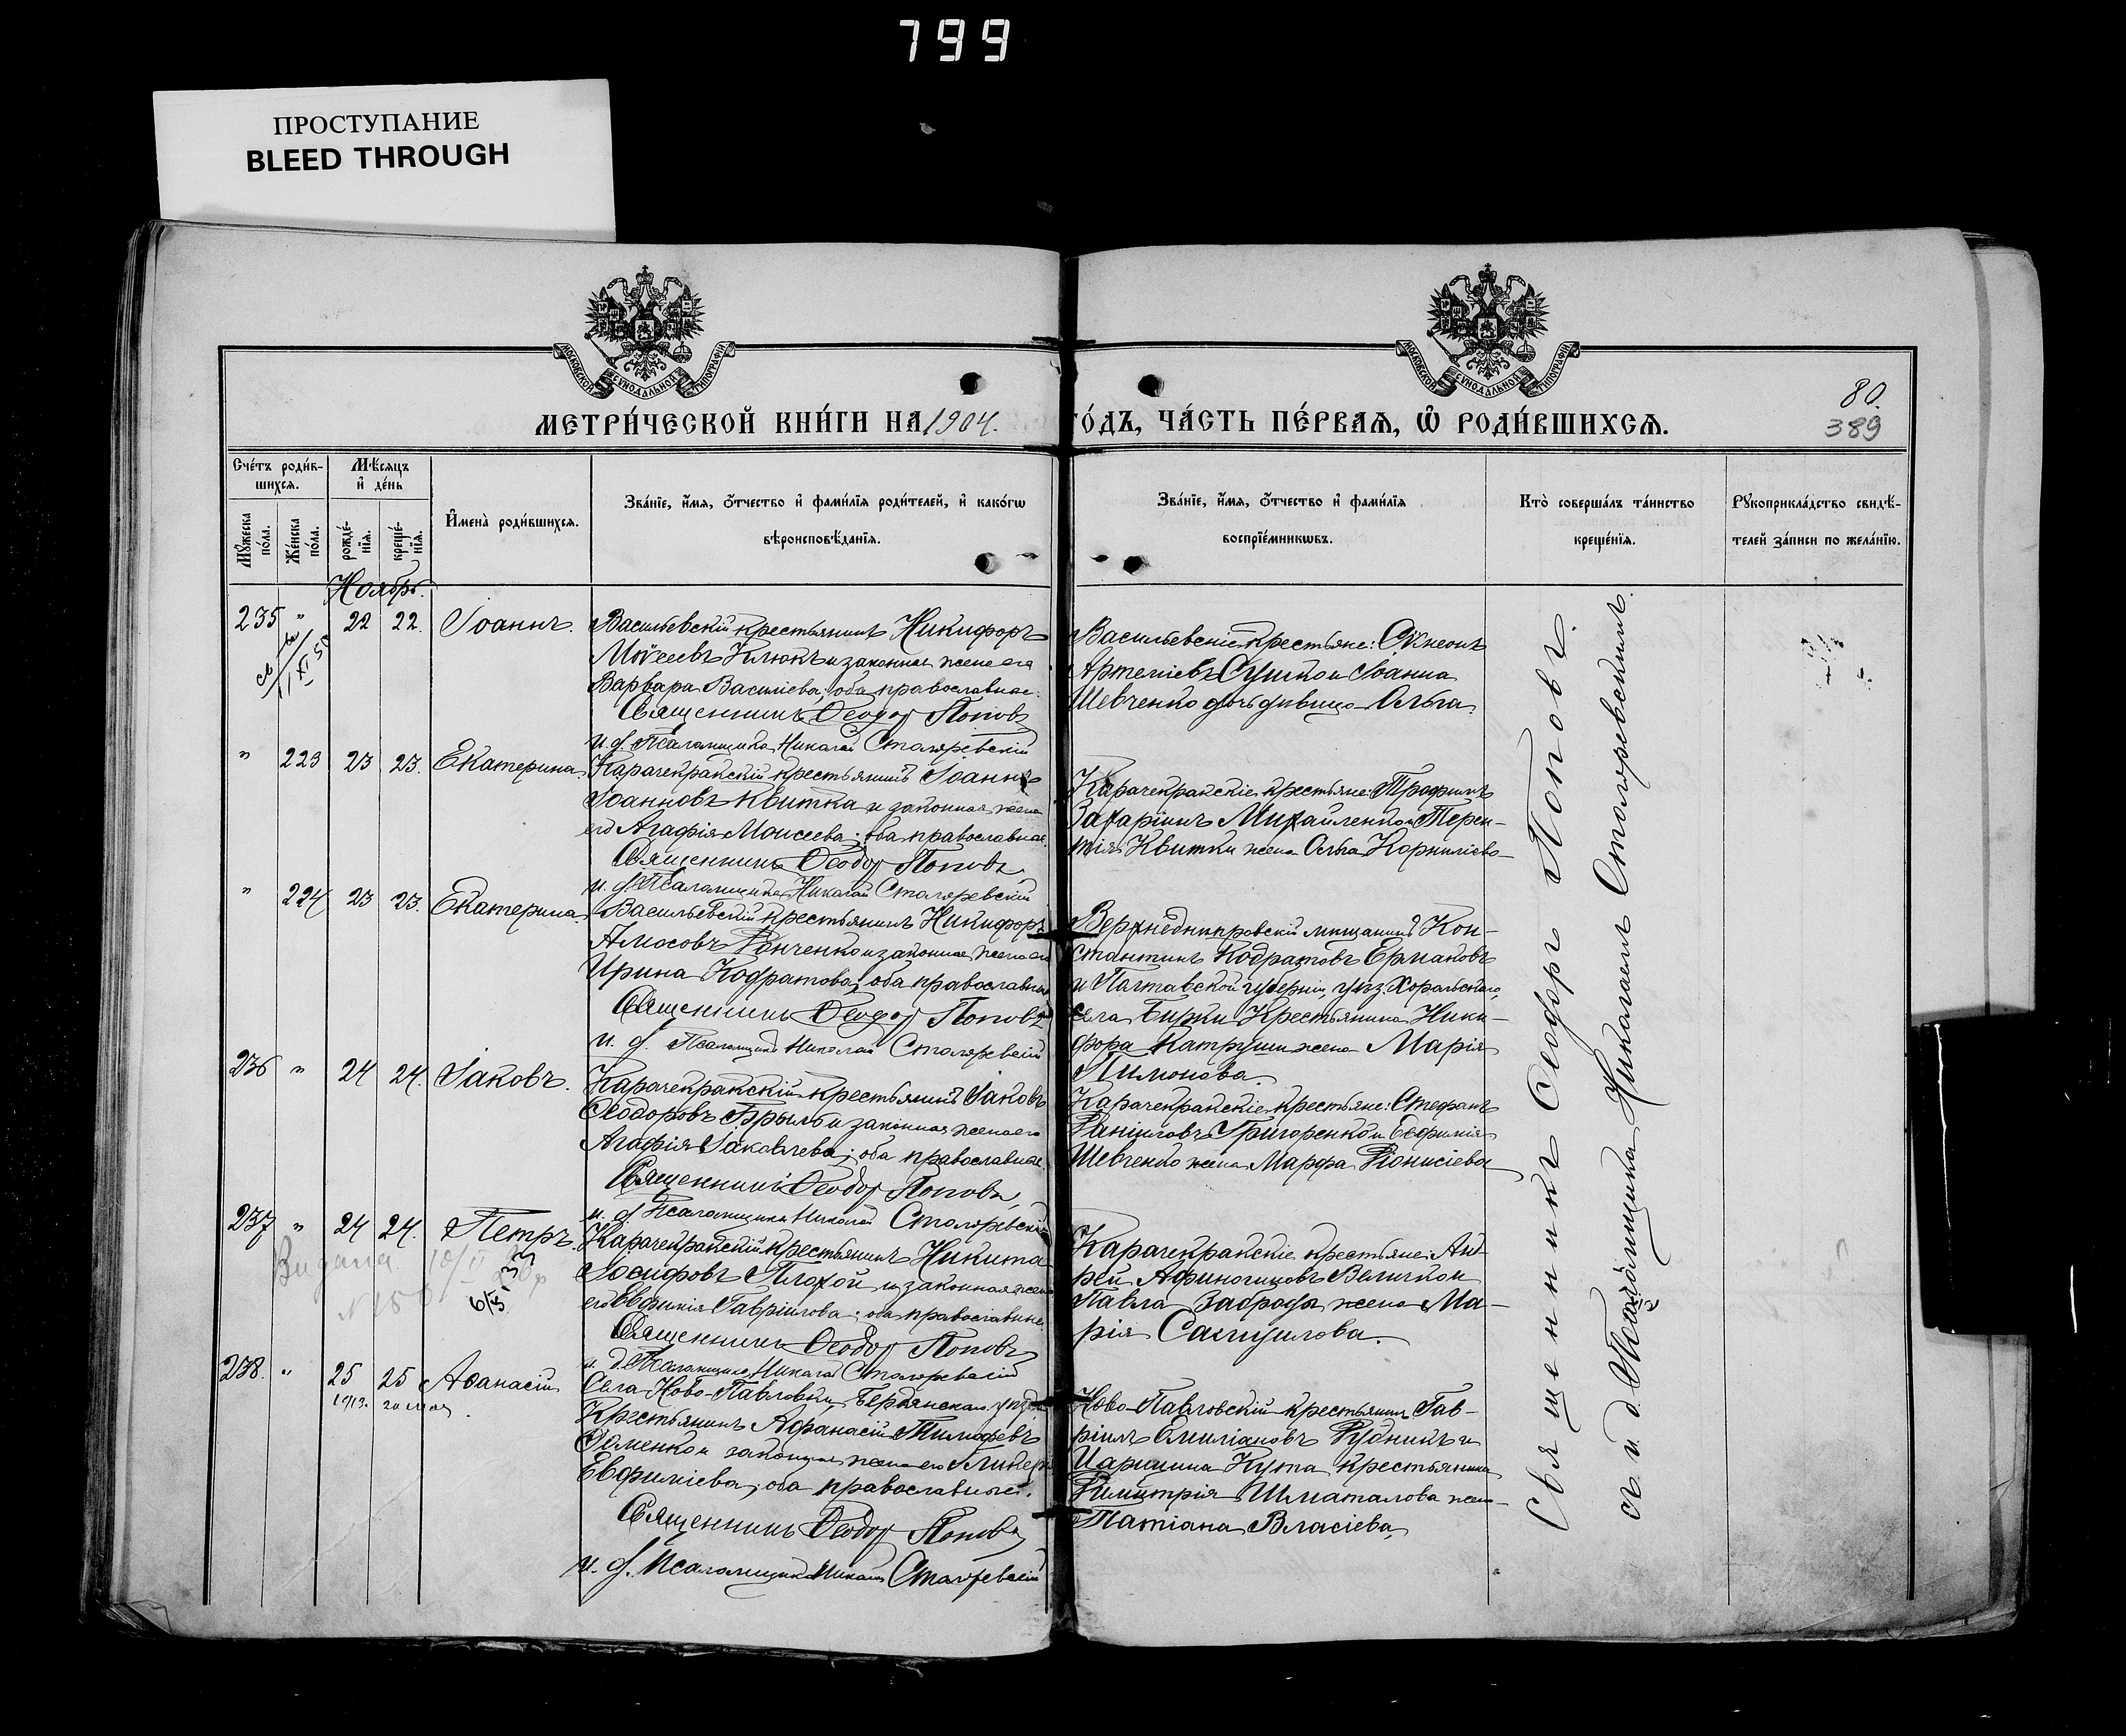 799
ПРОСТУПАНИЕ
BLEED THROUGH
МОСКОВСКОЙ СѴНОДАЛЬНОЙ ТИПОГРАФІИ
МОСКОВСКОЙ СѴНОДАЛЬНОЙ ТИПОГРАФІИ
80.
389
МЕТРИ́ЧЕСКОЙ КНИ́ГИ НА 1904. ГО́ДЪ, ЧА́СТЬ ПЕ́РВАѦ, Ѡ҆ РОДИ́ВШИХСѦ.
Сче́тъ роди́в-
шихсѧ.
Мꙋ́жеска по́ла.
Же́нска по́ла.
Мѣ́сѧцъ
и҆ де́нь
рожде́-
нїѧ.
креще́-
нїѧ.
И҆мена̀ роди́вшихсѧ.
Зва́нїе, и҆́мѧ, ѻ҆́тчество и҆ фами́лїѧ роди́телей, и҆ како́гѡ
вѣроисповѣ́данїѧ.
Зва́нїе, и҆́мѧ, ѻ҆́тчество и҆ фами́лїѧ
воспрїе́мникѡвъ.
Кто̀ соверша́лъ та́инство
креще́нїѧ.
Рꙋкоприкла́дство свидѣ́-
телей за́писи по жела́нїю.
Ноябрь.
235 " 22 22. Іоаннъ.
Васильевскій крестьянинъ Никифоръ
Моѵсеевъ Клюкъ и законная жена его
Варвара Василіева; оба православные.
Священникъ Ѳеодоръ Поповъ
и. д. Псаломщика Николай Столяревскій
Васильевскіе крестьяне: Сѵмеонъ
Артеміевъ Сушко и Іоанна
Шевченко дочь дѣвица Ольга.
" 223 23 23. Екатерина
Карачекракскій крестьянинъ Іоаннъ
Іоанновъ Квитка и законная жена
его Агафія Моисеева; оба православные.
Священникъ Ѳеодоръ Поповъ
и. д. Псаломщика Николай Столяревскій
Карачекракскіе крестьяне: Трофимъ
Захаріинъ Михайленко и Терен-
тія Квитки жена Ольга Корниліева
" 224 23 23. Екатерина.
Васильевскій крестьянинъ Никифоръ
Амосовъ Ганченко и законная жена его
Ирина Кодратова; оба православные
Священникъ Ѳеодоръ Поповъ
и. д. Псаломщика Николай Столяревскій
Верхнеднѣпровскій мѣщанинъ Кон-
стантинъ Кодратовъ Ермаковъ
и Полтавской губерніи, уѣз. Хорольскаго,
села Бирки Крестьянина Ники-
фора Катруши жена Марія
Пимонова.
236 " 24 24. Іаковъ.
Карачекракскій крестьянинъ Іаковъ
Ѳеодоровъ Брыль и законная жена его
Агафія Іаковлева; оба православные.
Священникъ Ѳеодоръ Поповъ
и. д. Псаломщика Николай Столяревскій
Карачекракскіе крестьяне: Стефанъ
Даніиловъ Григоренко и Евфимія
Шевченко жена Марфа Діонисіева
237 " 24 24. Петръ.
Карачекракскій крестьянинъ Никита
Іосифовъ Плохой и законная жена
его Евфимія Гавріилова; оба православные.
Священникъ Ѳеодоръ Поповъ
и. д. Псаломщика Николай Столяревскій
Карачекракскіе крестьяне: Анд-
рей Афиногеновъ Величко и
Павла Заброды жена Ма-
рія Самуилова.
238. " 25 25 Аѳанасій
1913. 20 мая
Села Ново-Павловки Бердянскаго уѣзда
Крестьянинъ Афанасій Тимофеевъ
Фоменко и законная жена его Гликерія
Евфиміева; оба православные.
Священникъ Ѳеодоръ Поповъ
и. д. Псаломщика Николай Столяревскій
Ново-Павловскій крестьянинъ Гав-
ріилъ Емиліановъ Рудникъ и
Царицина Кута крестьянина
Димитрія Шматалова жена
Татіана Власіева
Священникъ Ѳеодоръ Поповъ.
съ и. д. Псаломщика Николаемъ Столяревскимъ.